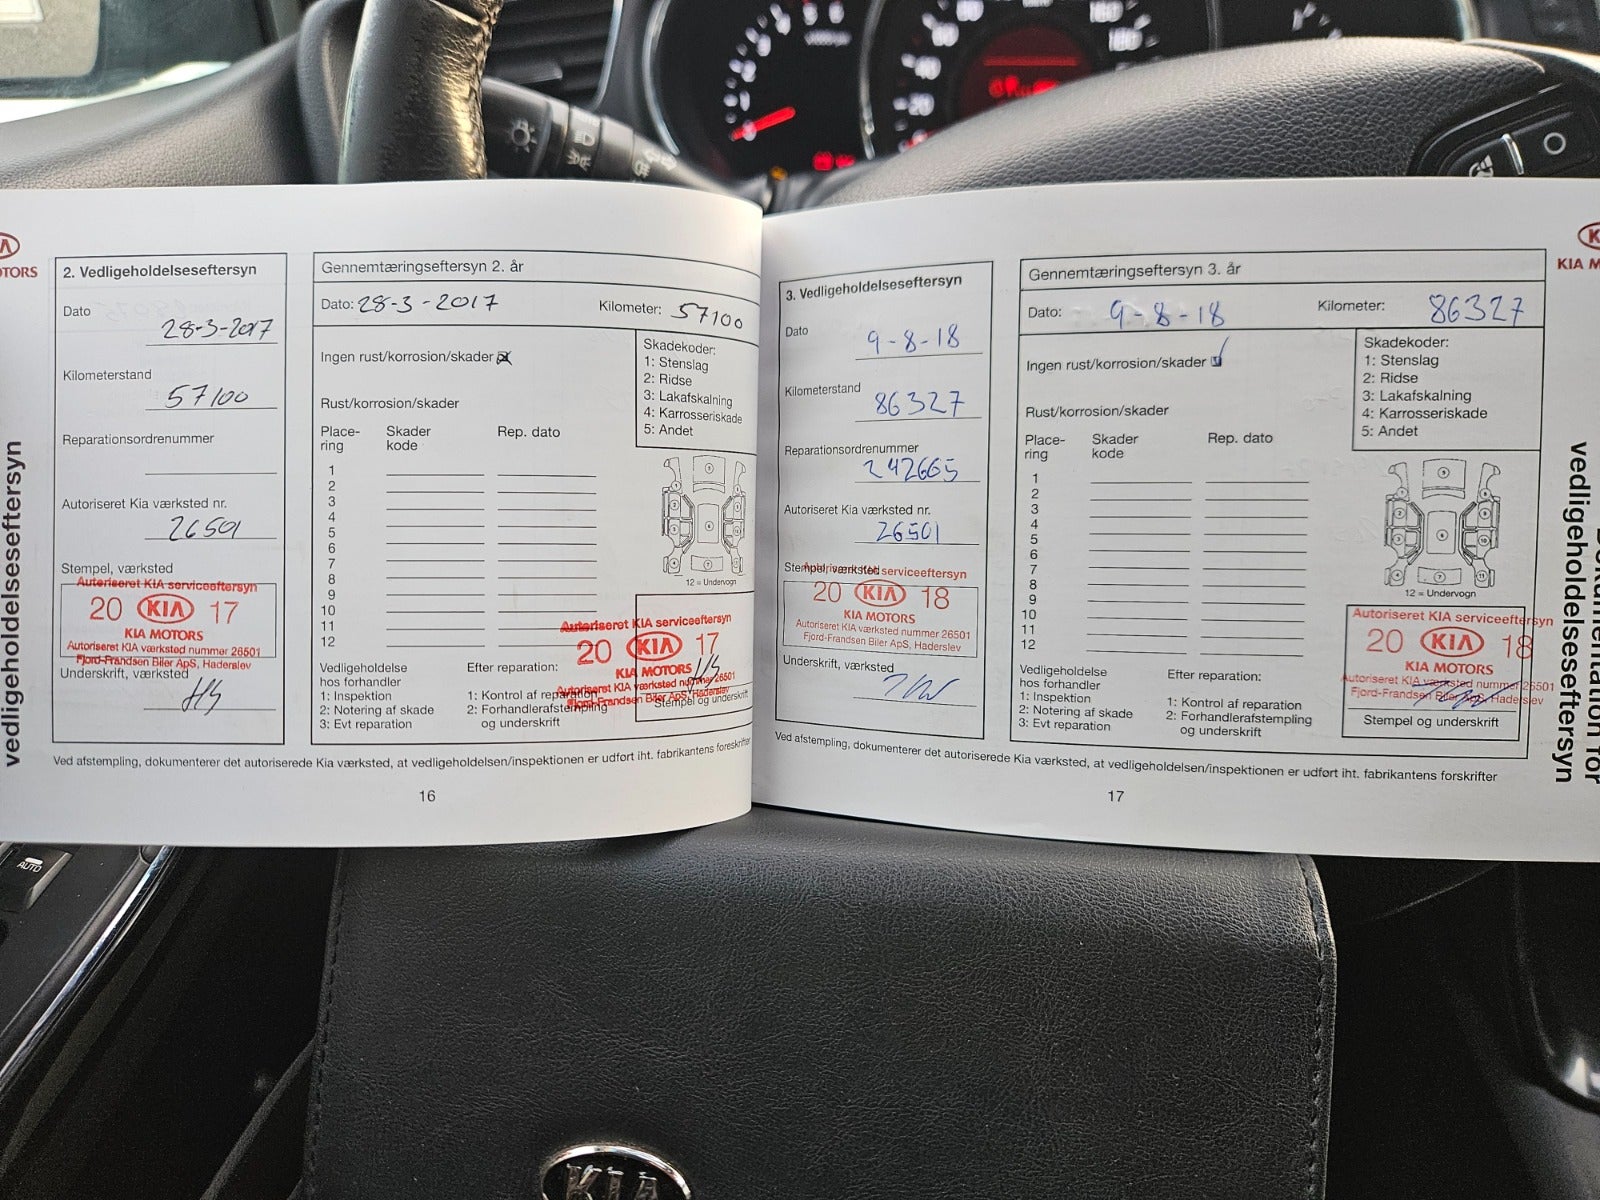 KIA
MOTORS
vedligeholdelseseftersyn
2. Vedligeholdelseseftersyn
Dato
28-3-2017
Kilometerstand
57100
Reparationsordrenummer
Autoriseret Kia værksted nr.
26501
Stempel, værksted
Autoriseret KIA serviceeftersyn
20 KIA 17
KIA MOTORS
Autoriseret KIA værksted nummer 26501
Fjord-Frandsen Biler ApS, Haderslev
Underskrift, værksted
Gennemtæringseftersyn 2. år
Dato: 28-3-2017 Kilometer: 57100
Ingen rust/korrosion/skader
Rust/korrosion/skader
Place-
ring
Skader
kode
Rep. dato
1
2
3
4
5
6
7
8
9
10
11
12
Skadekoder:
1: Stenslag
2: Ridse
3: Lakafskalning
4: Karrosseriskade
5: Andet
12 = Undervogn
Vedligeholdelse
hos forhandler
1: Inspektion
2: Notering af skade
3: Evt reparation
Efter reparation:
1: Kontrol af reparation
2: Forhandlerafstempling
og underskrift
Autoriseret KIA serviceeftersyn
20 KIA 17
KIA MOTORS
Autoriseret KIA værksted nummer 26501
Fjord-Frandsen Biler ApS, Haderslev
Stempel og underskrift
Ved afstempling, dokumenterer det autoriserede Kia værksted, at vedligeholdelsen/inspektionen er udført iht. fabrikantens foreskrifter
16
3. Vedligeholdelseseftersyn
Dato
9-8-18
Kilometerstand
86327
Reparationsordrenummer
242665
Autoriseret Kia værksted nr.
26501
Stempel, værksted
Autoriseret KIA serviceeftersyn
20 KIA 18
KIA MOTORS
Autoriseret KIA værksted nummer 26501
Fjord-Frandsen Biler ApS, Haderslev
Underskrift, værksted
Gennemtæringseftersyn 3. år
Dato: 9-8-18 Kilometer: 86327
Ingen rust/korrosion/skader
Rust/korrosion/skader
Place-
ring
Skader
kode
Rep. dato
1
2
3
4
5
6
7
8
9
10
11
12
Skadekoder:
1: Stenslag
2: Ridse
3: Lakafskalning
4: Karrosseriskade
5: Andet
12 = Undervogn
Vedligeholdelse
hos forhandler
1: Inspektion
2: Notering af skade
3: Evt reparation
Efter reparation:
1: Kontrol af reparation
2: Forhandlerafstempling
og underskrift
Autoriseret KIA serviceeftersyn
20 KIA 18
KIA MOTORS
Autoriseret KIA værksted nummer 26501
Fjord-Frandsen Biler ApS, Haderslev
Stempel og underskrift
Ved afstempling, dokumenterer det autoriserede Kia værksted, at vedligeholdelsen/inspektionen er udført iht. fabrikantens forskrifter
17
KIA M
Dokumentation for
vedligeholdelseseftersyn
AUTO
KIA